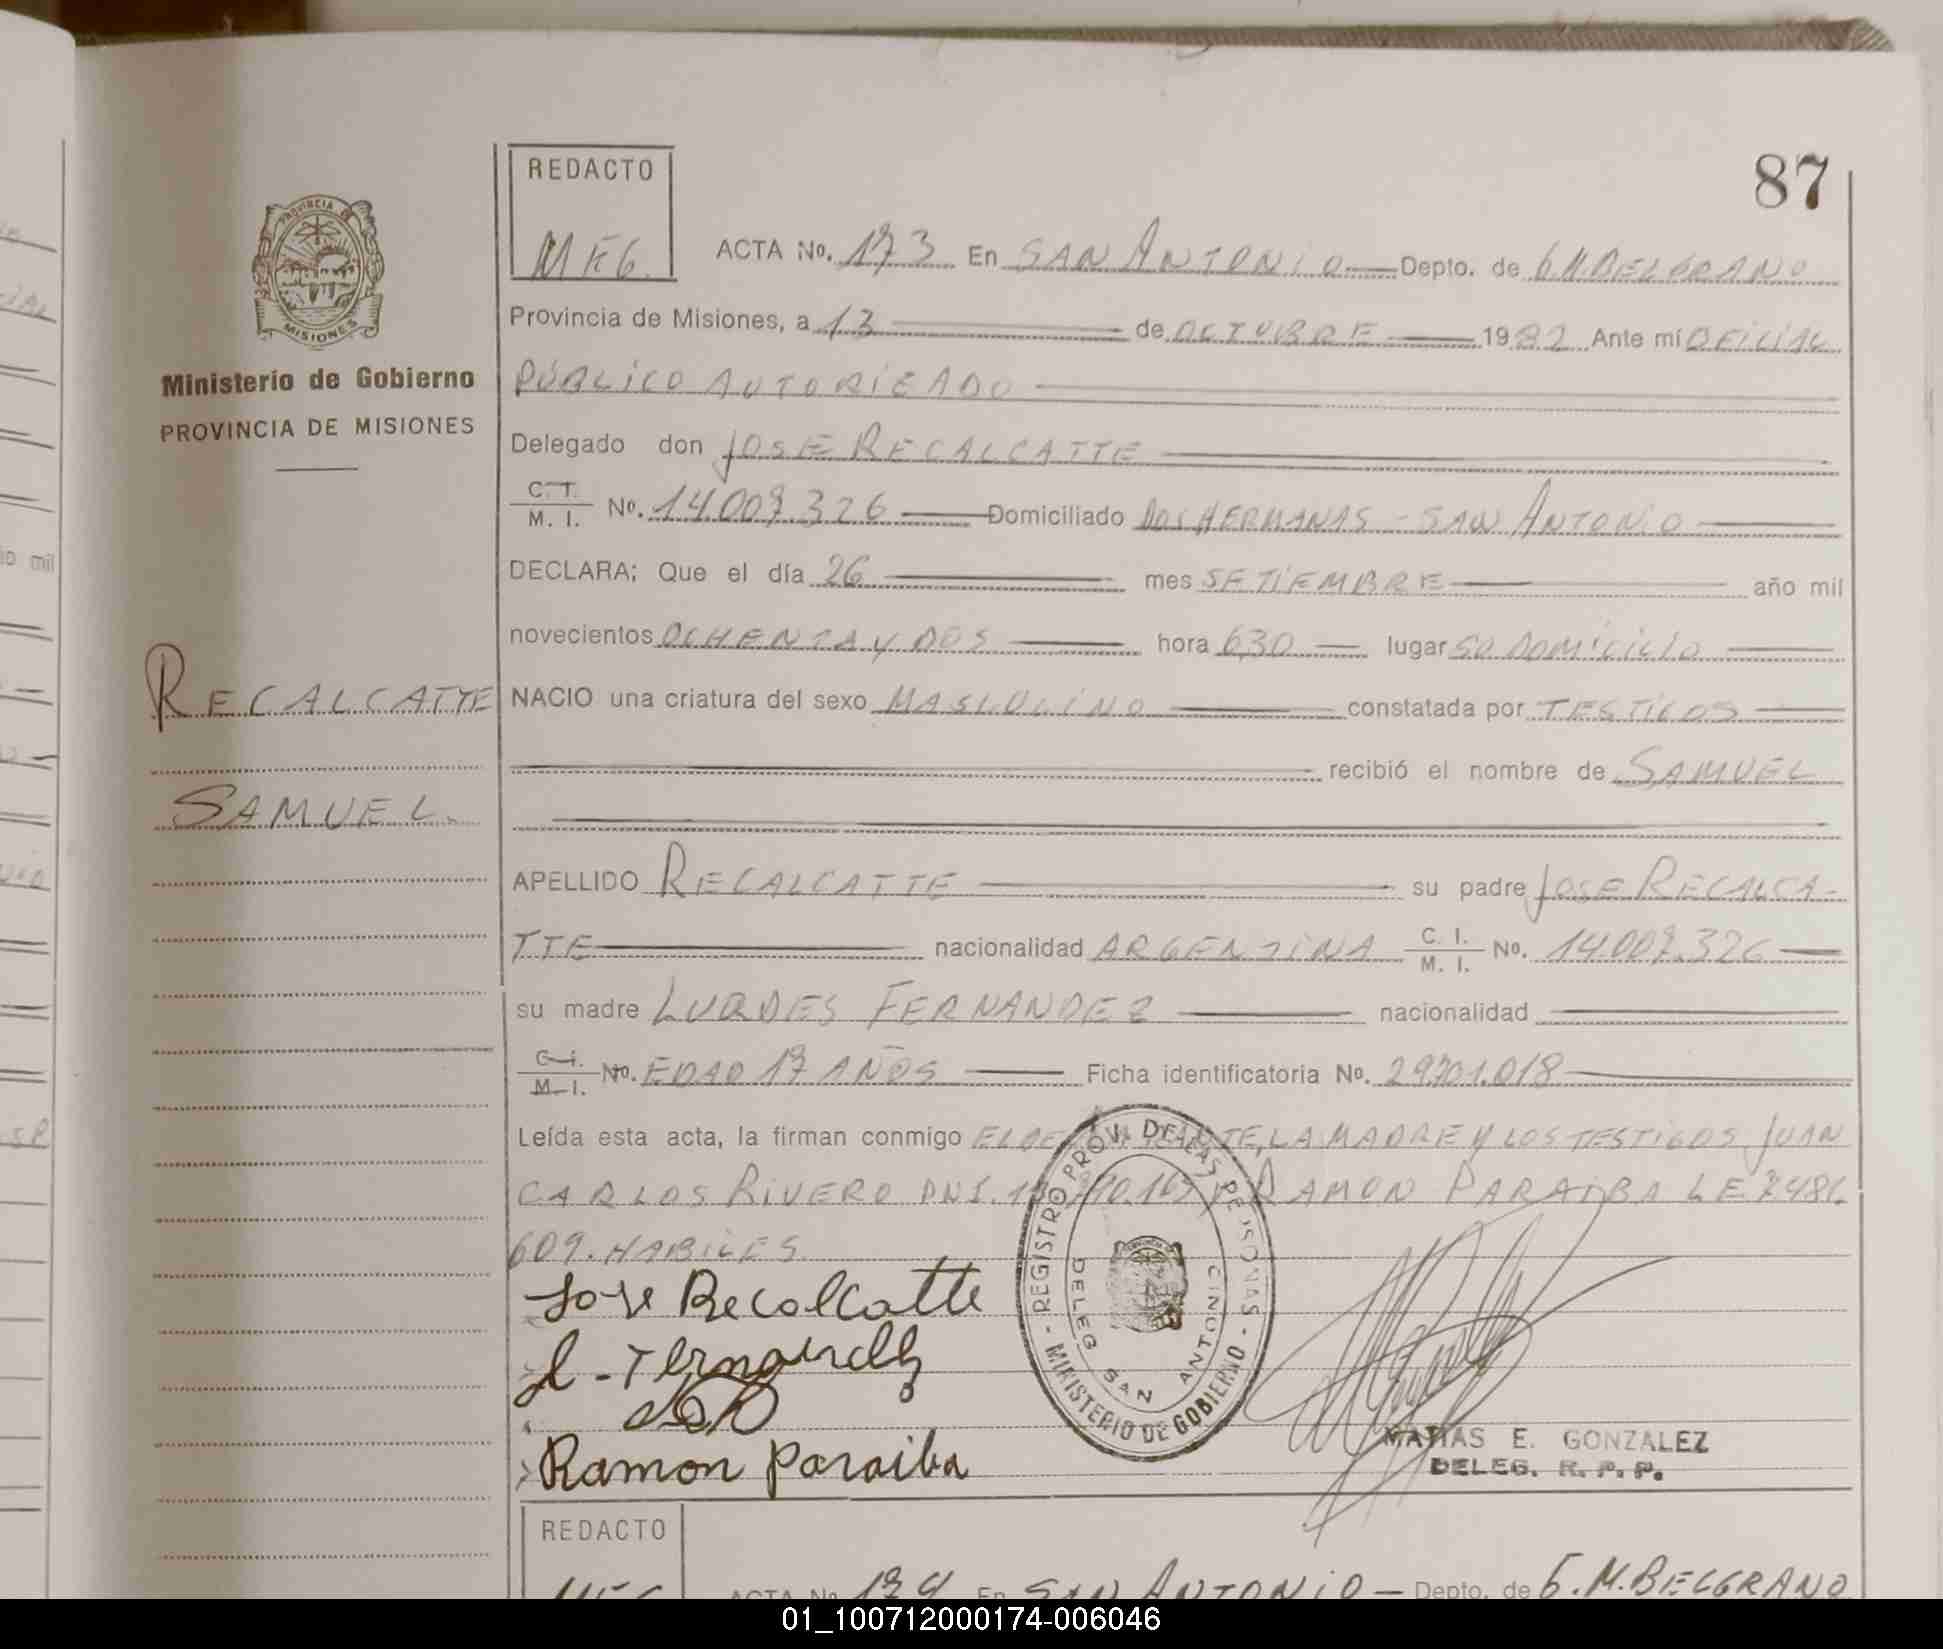 87
REDACTO
MEG.
ACTA No. 173 En SAN ANTONIO Depto. de G.M.BELGRANO
PROVINCIA DE
MISIONES
Provincia de Misiones, a 13 de OCTUBRE 1982 Ante mí OFICIAL
Ministerio de Gobierno
PÚBLICO AUTORIZADO
PROVINCIA DE MISIONES
Delegado don JOSE RECALCATTE
C. T.
M. I. No. 14.007.326 Domiciliado DOS HERMANAS - SAN ANTONIO
DECLARA: Que el día 26 mes SETIEMBRE año mil
novecientos OCHENTA Y DOS hora 6,30 lugar SU DOMICILIO
RECALCATTE
NACIO una criatura del sexo MASCULINO constatada por TESTIGOS
recibió el nombre de SAMUEL
SAMUEL.
APELLIDO RECALCATTE su padre JOSE RECALCA-
TTE nacionalidad ARGENTINA C. I. M. I. No. 14.007.326
su madre LURDES FERNANDEZ nacionalidad
C. I. M. I. No. EDAD 17 AÑOS Ficha identificatoria No. 29.701.018
Leída esta acta, la firman conmigo EL LA MADRE Y LOS TESTIGOS JUAN
CARLOS RIVERO DNI. RAMON PARAIBA L E 7.486.
609. HABILES.
REGISTRO PROV. DE LAS PERSONAS
- MINISTERIO DE GOBIERNO -
DELEG SAN ANTONIO
Jose Recalcatte
L - Fernandez
Ramon Paraiba
MATIAS E. GONZALEZ
DELEG. R. P. P.
REDACTO
MEG
ACTA No. 174 En SAN ANTONIO Depto. de G.M.BELGRANO
01_100712000174-006046